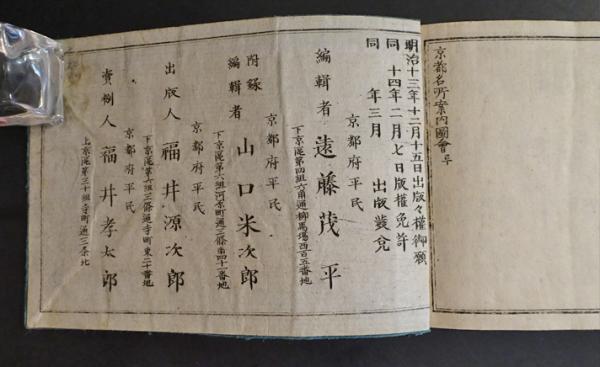 京都名所案内圖會
明治十三年十二月十五日出版々權御願
同 十四年二月七日版權免許
同 年三月 出版發兌
京都府平民
編輯者 遠藤茂平
下京區第四組六角通柳馬場西百五番地
京都府平民
附錄編輯者 山口米次郎
下京區第六組河原町通三條南四十一番地
京都府平民
出版人 福井源次郎
下京區第六組三條通寺町東二十番地
京都府平民
賣捌人 福井孝太郎
上京區第三十組寺町通三條北